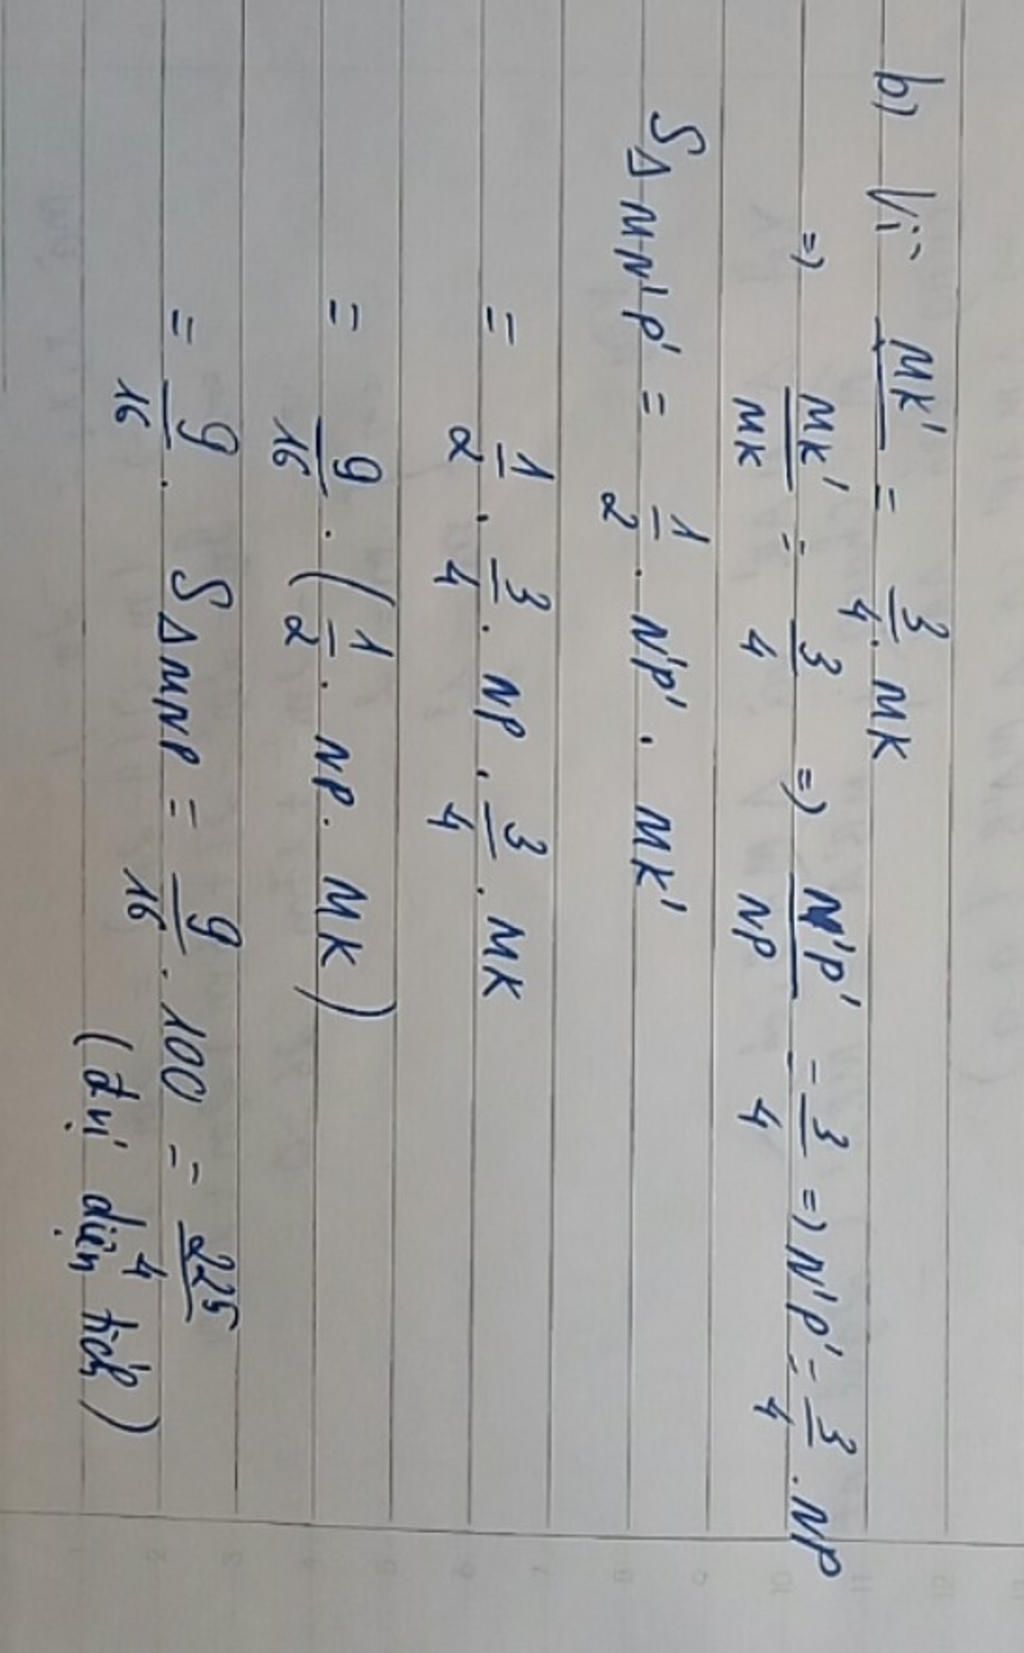 b) Vì MK' = 3/4 . MK
=> MK'/MK = 3/4 => N'P'/NP = 3/4 => N'P' = 3/4 . NP
SΔMN'P' = 1/2 . N'P' . MK'
= 1/2 . 3/4 . NP . 3/4 . MK
= 9/16 . (1/2 . NP . MK)
= 9/16 . SΔMNP = 9/16 . 100 = 225/4
(đvị diện tích)